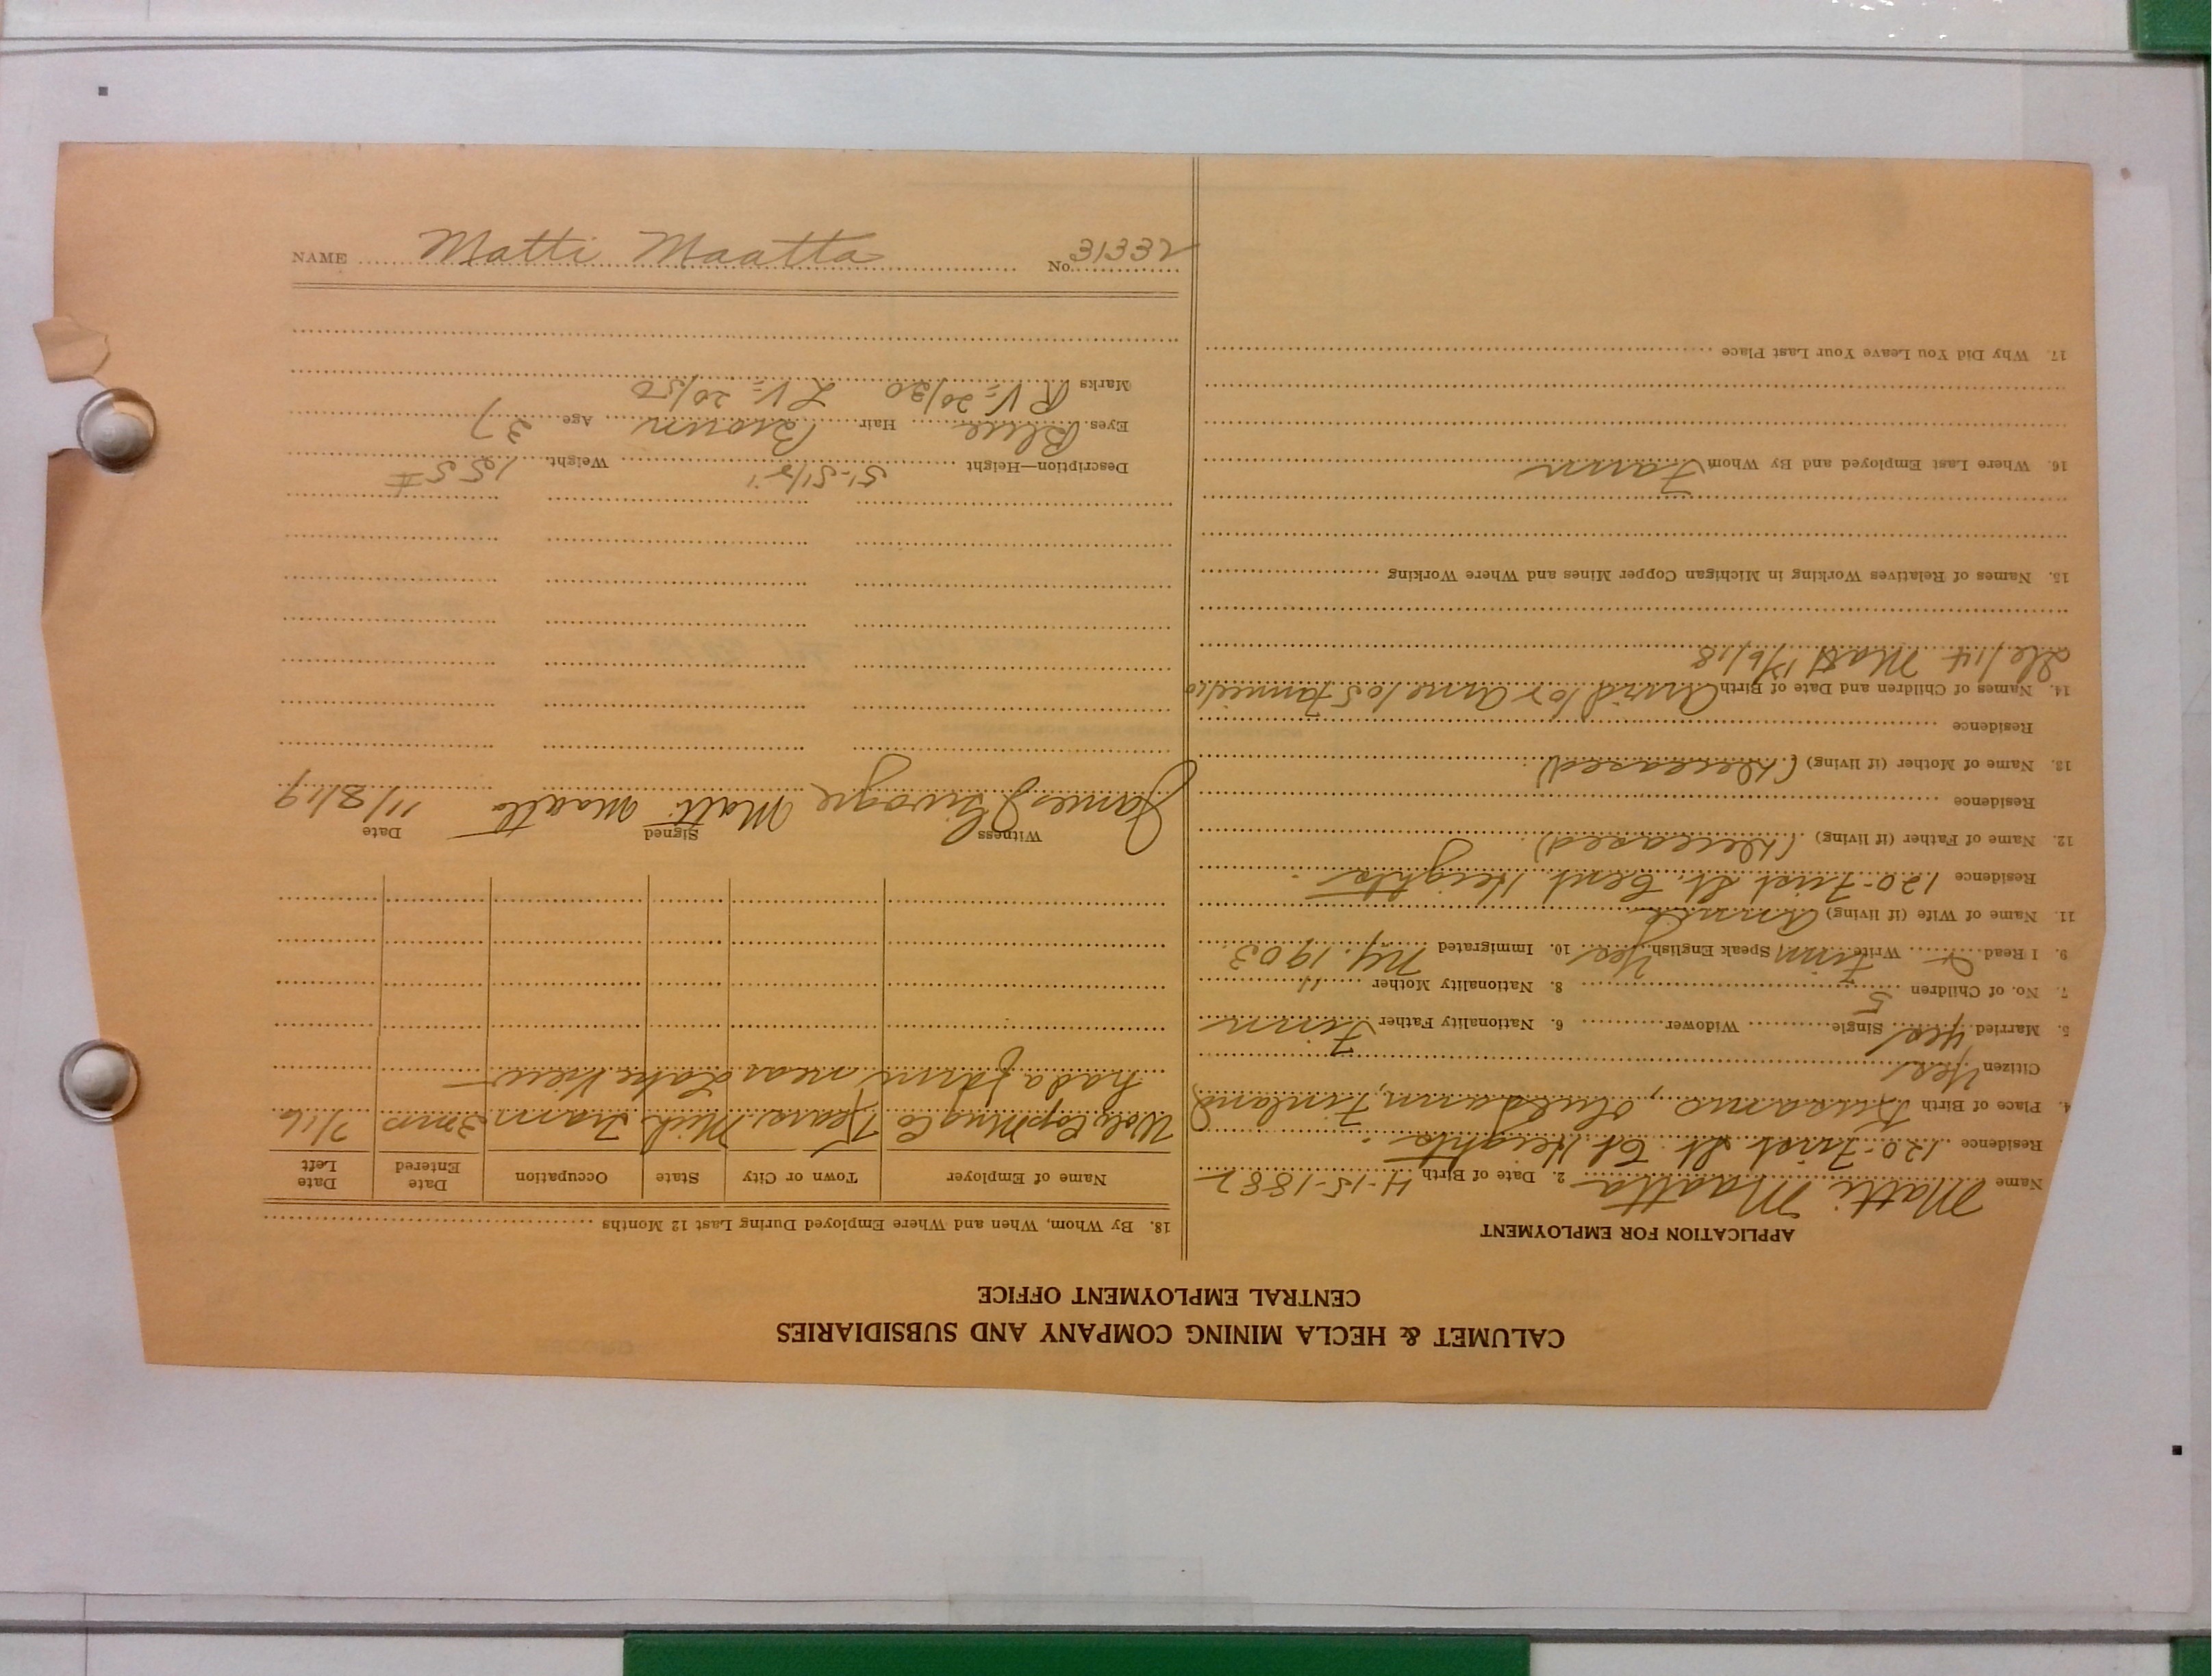 CALUMET & HECLA MINING COMPANY AND SUBSIDIARIES
CENTRAL EMPLOYMENT OFFICE
APPLICATION FOR EMPLOYMENT
Name Matti Maatta 2. Date of Birth 4-15-1882
Residence 120-First St. Cl Heights
4. Place of Birth Kusamo, Finland
Citizen Yes
5. Married Yes Single Widower 6. Nationality Father Finn
7. No. of Children 5 8. Nationality Mother "
9. I Read Write Finn Speak English Yes 10. Immigrated N.Y. 1903
11. Name of Wife (if living) Anna
Residence 120-First St. Cent. Heights
12. Name of Father (if living) (Deceased)
Residence
13. Name of Mother (if living) (Deceased)
Residence
14. Names of Children and Date of Birth Arvid Anne /05
/14 Matt /18
15. Names of Relatives Working in Michigan Copper Mines and Where Working
16. Where Last Employed and By Whom Farm
17. Why Did You Leave Your Last Place
18. By Whom, When and Where Employed During Last 12 Months
Name of Employer Town or City State Occupation Date Entered Date Left
Wolv. Cop Mng Co Kears. Mich. Tram 3 mos 7/16
had a farm near Lake View
Witness Signed Date
James Matti Maatta 11/8/19
Description—Height 5'-5 1/2" Weight 155 #
Eyes Blue Hair Brown Age 37
Marks R V= 20/30 L V= 20/50
NAME Matti Maatta No. 31332